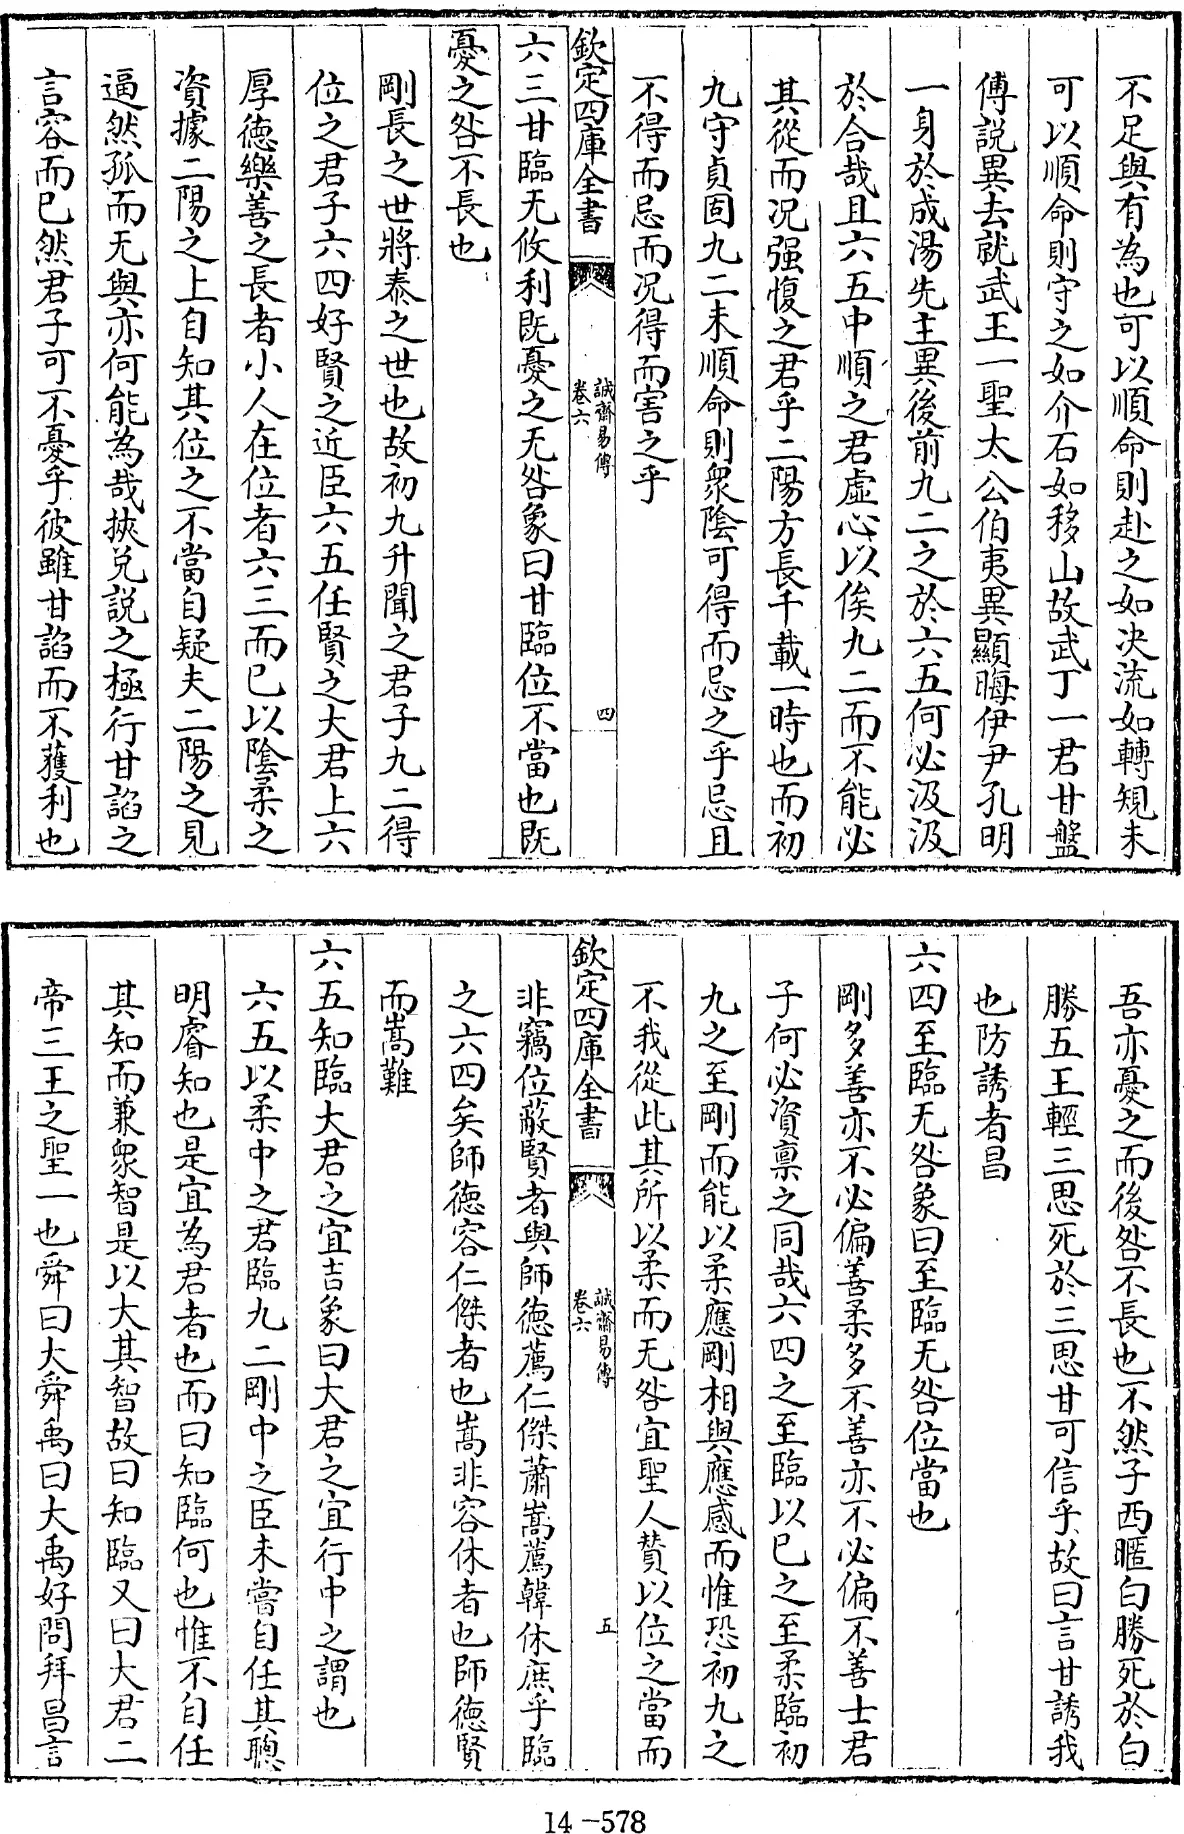 不足與有為也可以順命則赴之如决流如轉規未
可以順命則守之如介石如移山故武丁一君甘盤
傅說異去就武王一聖太公伯夷異顯晦伊尹孔明
一身於成湯先主異後前九二之於六五何必汲汲
於合哉且六五中順之君虛心以俟九二而不能必
其從而况强愎之君乎二陽方長千載一時也而初
九守貞固九二未順命則衆陰可得而忌之乎忌且
不得而忌而况得而害之乎
欽定四庫全書
誠齋易傳
卷六
四
六三甘臨无攸利既憂之无咎象曰甘臨位不當也既
憂之咎不長也
剛長之世將泰之世也故初九升聞之君子九二得
位之君子六四好賢之近臣六五任賢之大君上六
厚德樂善之長者小人在位者六三而已以陰柔之
資據二陽之上自知其位之不當自疑夫二陽之見
逼然孤而无與亦何能為哉挾兌說之極行甘諂之
言容而已然君子可不憂乎彼雖甘諂而不獲利也
吾亦憂之而後咎不長也不然子西暱白勝死於白
勝五王輕三思死於三思甘可信乎故曰言甘誘我
也防誘者昌
六四至臨无咎象曰至臨无咎位當也
剛多善亦不必偏善柔多不善亦不必偏不善士君
子何必資稟之同哉六四之至臨以已之至柔臨初
九之至剛而能以柔應剛相與應感而惟恐初九之
不我從此其所以柔而无咎宜聖人贊以位之當而
欽定四庫全書
誠齋易傳
卷六
五
非竊位蔽賢者與師德薦仁傑蕭嵩薦韓休庶乎臨
之六四矣師德容仁傑者也嵩非容休者也師德賢
而嵩難
六五知臨大君之宜吉象曰大君之宜行中之謂也
六五以柔中之君臨九二剛中之臣未嘗自任其聰
明睿知也是宜為君者也而曰知臨何也惟不自任
其知而兼衆智是以大其智故曰知臨又曰大君二
帝三王之聖一也舜曰大舜禹曰大禹好問拜昌言
14-578